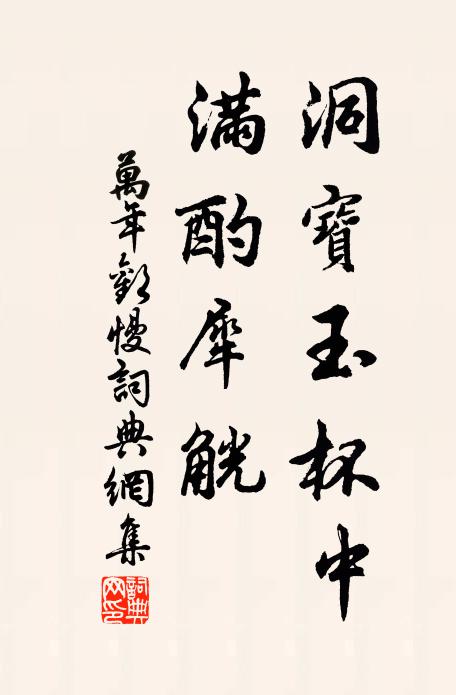 洞寶玉杯中
滿酌犀觥
萬年歡慢詞典網集
詞典網印